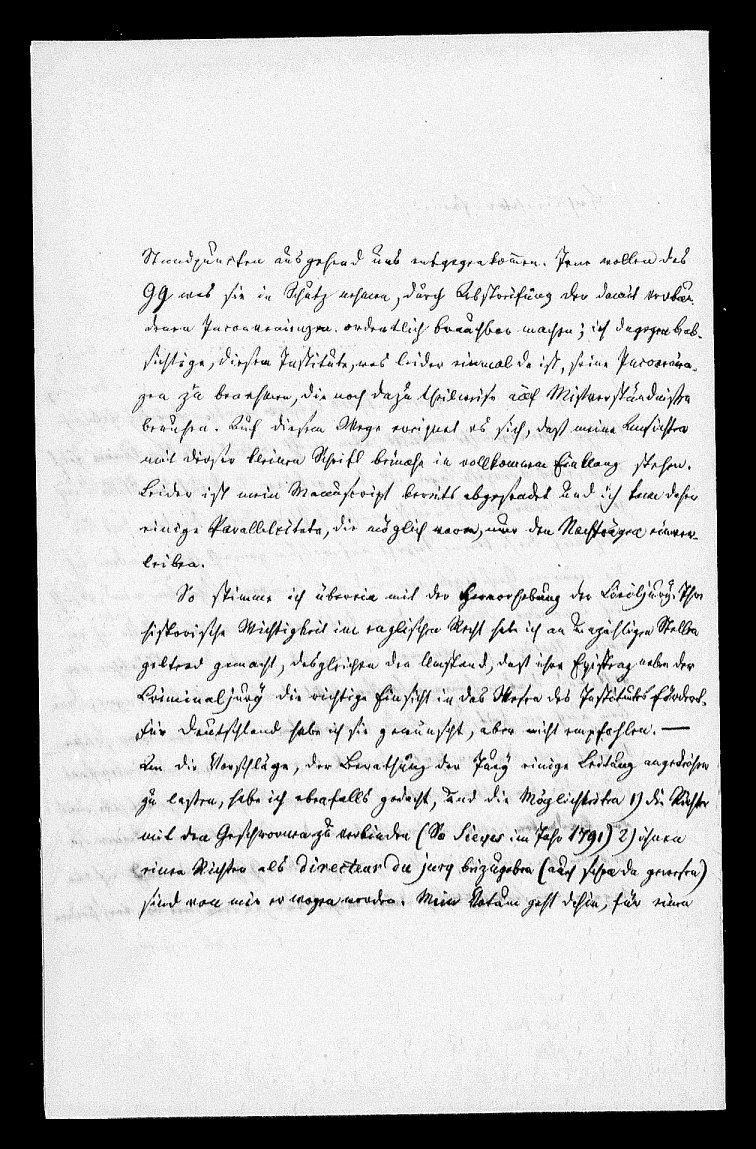 Standpunkten ausgehend uns entgegenkommen. Jene wollen das
GG was sie in Schutz nehmen, durch Abstreifung der damit verbun-
denen Inconvenienzen ordentlich brauchbar machen; ich dagegen beab-
sichtige, diesem Institute, was leider einmal da ist, seine Inconvenien-
zen zu benehmen, die noch dazu theilweise auf Mistverständnissen
beruhen. Auf diesem Wege ereignet es sich, daß meine Ansichten
mit dieser kleinen Schrift beinahe in vollkommen Einklang stehen.
Leider ist mein Manuscript bereits abgesendet und ich kann daher
einige Parallelcitate, die möglich waren, nur den Nachträgen einver-
leiben.
So stimme ich überein mit der Hervorhebung der Civiljury. Ihre
historische Wichtigkeit im englischen Recht habe ich an unzähligen Stellen
geltend gemacht, desgleichen den Umstand, daß ihre Existenz neben der
Criminaljury die richtige Einsicht in das Wesen des Instituts fördert.
Für Deutschland habe ich sie gewünscht, aber nicht empfohlen. —
An die Vorschläge, der Berathung der Jury einige Leitung angedeihen
zu lassen, habe ich ebenfalls gedacht, und die Möglichkeiten 1) die Richter
mit den Geschworenen zu verbinden (So Sieyes im Jahr 1791) 2) ihnen
einen Richter als directeur du jury beizugeben (auch schon da gewesen)
sind von mir erwogen worden. Mein Votum geht dahin, für einen